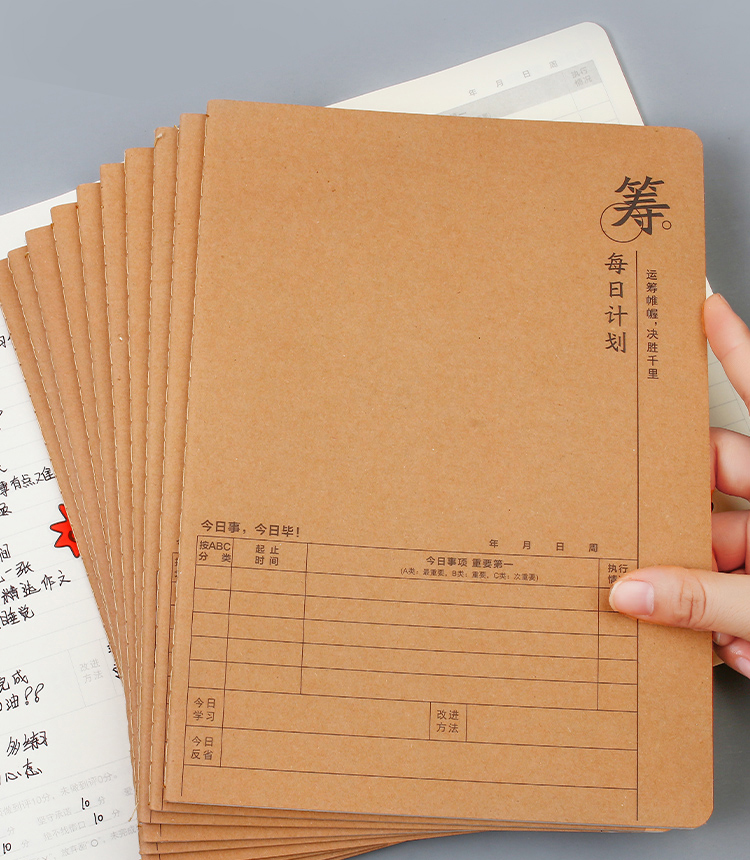 年 月 日 周
执行
筹。
每日计划
运筹帷幄，决胜千里
今日事，今日毕！
年 月 日 周
按ABC
分 类
起 止
时间
今日事项 重要第一
(A类：最重要，B类：重要，C类：次重要)
执行
今日
学习
改进
方法
今日
反省
有点难
间
精选作文
睡觉
改进
方法
完成
油!!
多练习
心态
10
10